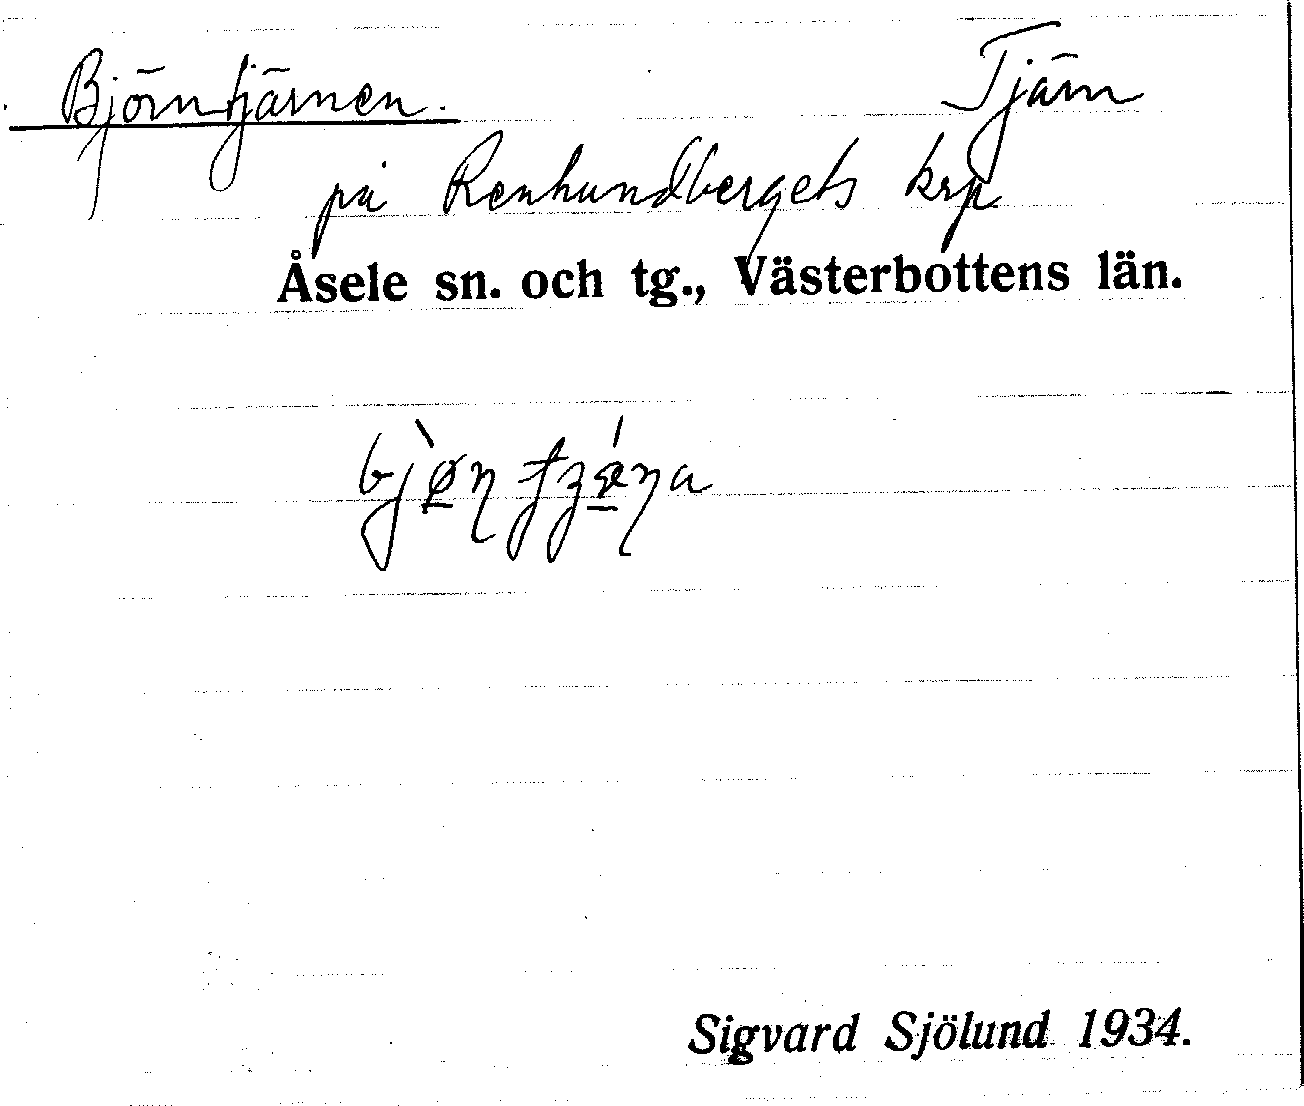 Björntjärnen. Tjärn
på Renhundbergets krp
Åsele sn. och tg., Västerbottens län.
Sigvard Sjölund 1934.